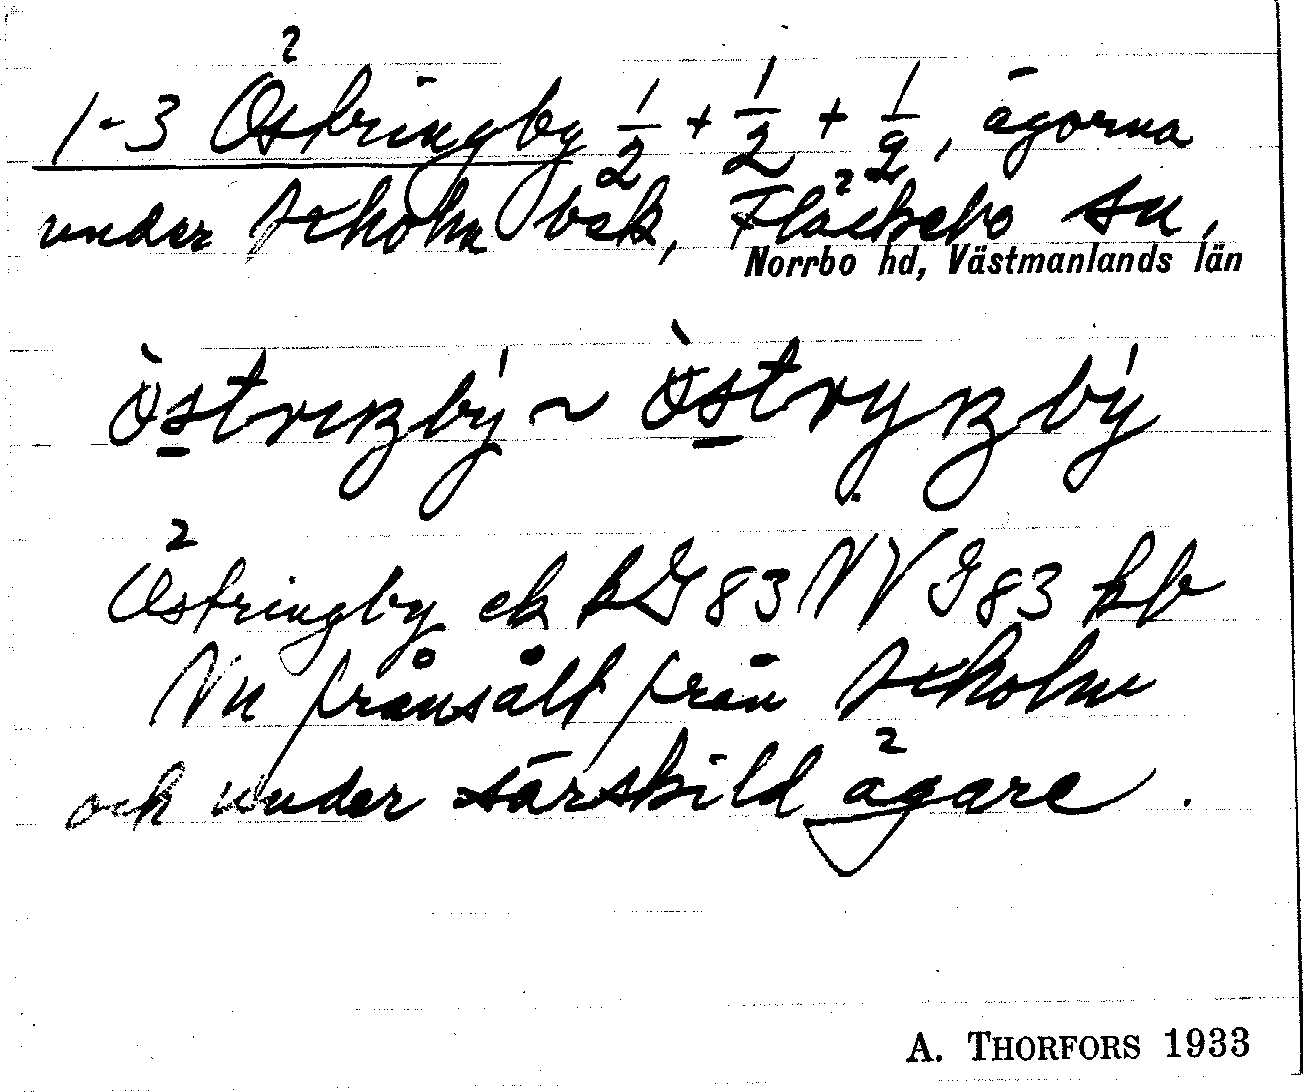 1-3 Östringby 1/2 + 1/2 + 1/2, ägorna
under Seholm bek, Fläckebo sn,
Norrbo hd, Västmanlands län
Östringby ek k G83 NV G83 kb
Nu frånsålt från Seholm
och under särskild ägare.
A. THORFORS 1933